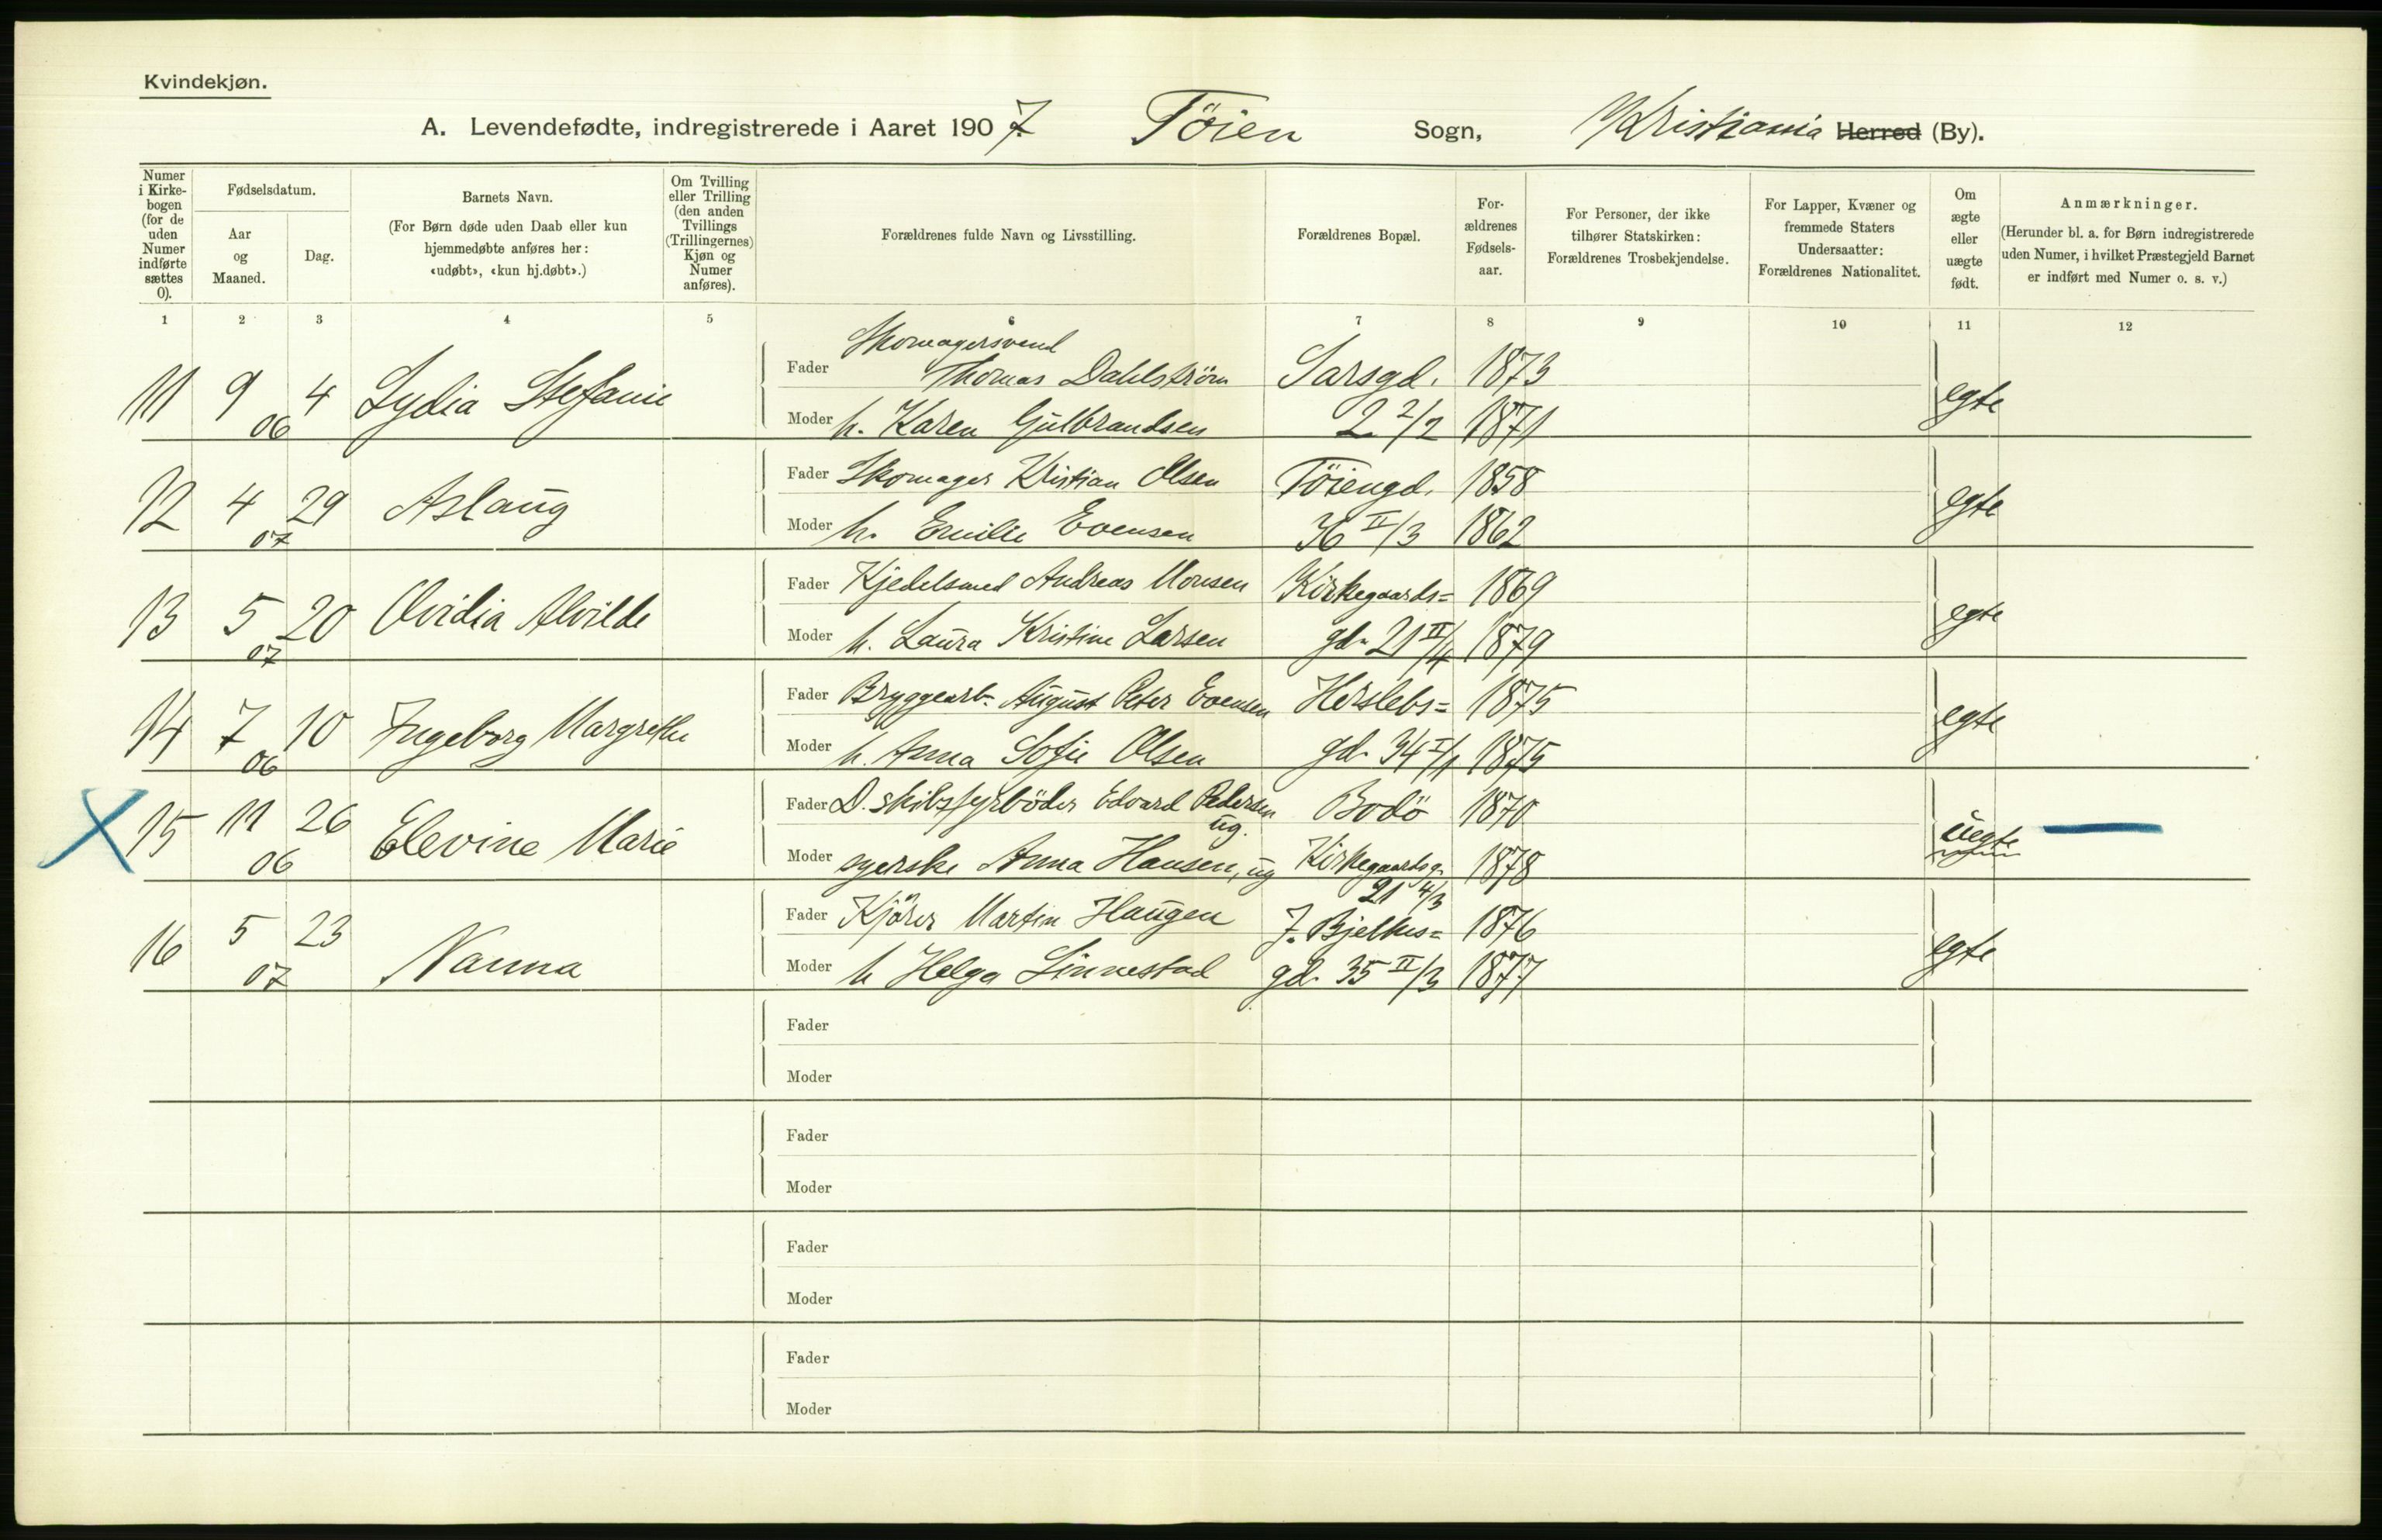 Kvindekjøn.
A. Levendefødte, indregistrerede i Aaret 1907. Töien Sogn, Kristiania Herred (By).
Numer i Kirkebogen (for de uden Numer indførte sættes 0).
Fødselsdatum.
Aar og Maaned.
Dag.
Barnets Navn.
(For Børn døde uden Daab eller kun hjemmedøbte anføres her: «udøbt», «kun hj.døbt».)
Om Tvilling eller Trilling (den anden Tvillings (Trillingernes) Kjøn og Numer anføres).
Forældrenes fulde Navn og Livsstilling.
Forældrenes Bopæl.
Forældrenes Fødselsaar.
For Personer, der ikke tilhører Statskirken: Forældrenes Trosbekjendelse.
For Lapper, Kvæner og fremmede Staters Undersaatter: Forældrenes Nationalitet.
Om ægte eller uægte født.
Anmærkninger.
(Herunder bl. a. for Børn indregistrerede uden Numer, i hvilket Præstegjeld Barnet er indført med Numer o. s. v.)
1 2 3 4 5 6 7 8 9 10 11 12
Skomagersvend
11 9 06 4 Lydia Stefanie Fader Thomas Dahlstrøm Sarsgd. 1873 egte
Moder h. Karen Gulbrandsen 2 2/2 1871
12 4 07 29 Aslaug Fader Skomager Kristian Olsen Töiengd. 1858 egte
Moder h. Emilie Evensen 36 II/3 1862
13 5 07 20 Ovidia Alvilde Fader Kjedelsmed Andreas Monsen Kirkegaards= 1869 egte
Moder h. Laura Kristine Larsen gd. 21 II/4 1879
14 7 06 10 Ingeborg Margrethe Fader Bryggearb. August Peter Evensen Herslebs= 1875 egte
Moder h. Anna Sofie Olsen gd. 34 I/1 1875
15 11 06 26 Elevine Marie Fader D. skibsfyrböder Edvard Pedersen ug. Bodö 1870 uegte
Moder syerske Anna Hansen, ug Kirkegaardsg. 21 4/3 1878
16 5 07 23 Nanna Fader Kjörer Martin Haugen J. Bjelkes= 1876 egte
Moder h Helga Linnestad gd. 35 II/3 1877
Fader
Moder
Fader
Moder
Fader
Moder
Fader
Moder